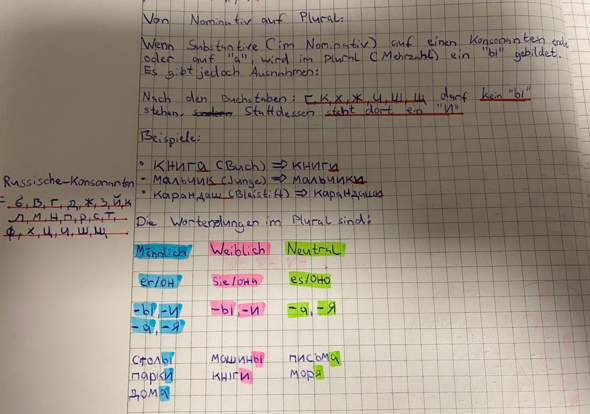 Von Nominativ auf Plural:
Wenn Substantive (im Nominativ) auf einen Konsonanten
oder auf "a", wird im Plural (Mehrzahl) ein "ы" gebildet.
Es gibt jedoch Ausnahmen:
Nach den Buchstaben: Г, К, Х, Ж, Ч, Ш, Щ darf kein "ы"
stehen, Stattdessen steht dort ein "И"
Beispiele:
• Книга (Buch) ⇒ Книги
• Мальчик (Junge) ⇒ Мальчики
• Карандаш (Bleistift) ⇒ Карандаши
Russische-Konsonanten
= б, в, г, д, ж, з, й, к
л, м, н, п, р, с, т,
ф, х, ц, ч, ш, щ
Die Wortendungen im Plural sind:
Männlich Weiblich Neutral
er/он sie/она es/оно
-ы, -и -ы, -и -а, -я
-а, -я
столы машины письма
парки книги моря
дома